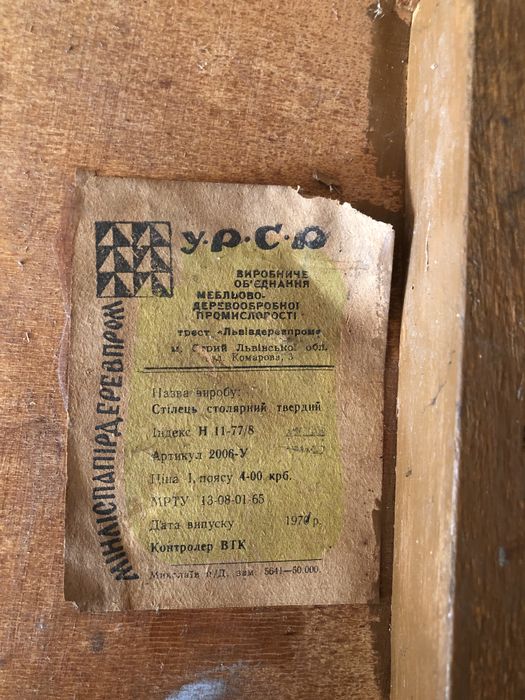 У·Р·С·Р
ВИРОБНИЧЕ
ОБ'ЄДНАННЯ
МЕБЛЬОВО-
ДЕРЕВООБРОБНОЇ
ПРОМИСЛОВОСТІ
трест «Львівдеревпром»
м. Стрий Львівської обл.
вул. Комарова, 3
МІНЛІСПАПІРДЕРЕВПРОМ
Назва виробу:
Стілець столярний твердий
Індекс Н 11-77/8
Артикул 2006-У
Ціна 1, поясу 4-00 крб.
МРТУ 13-08-01-65
Дата випуску 1971 р.
Контролер ВТК
Миколаїв н/Д. зам. 5641—50.000.